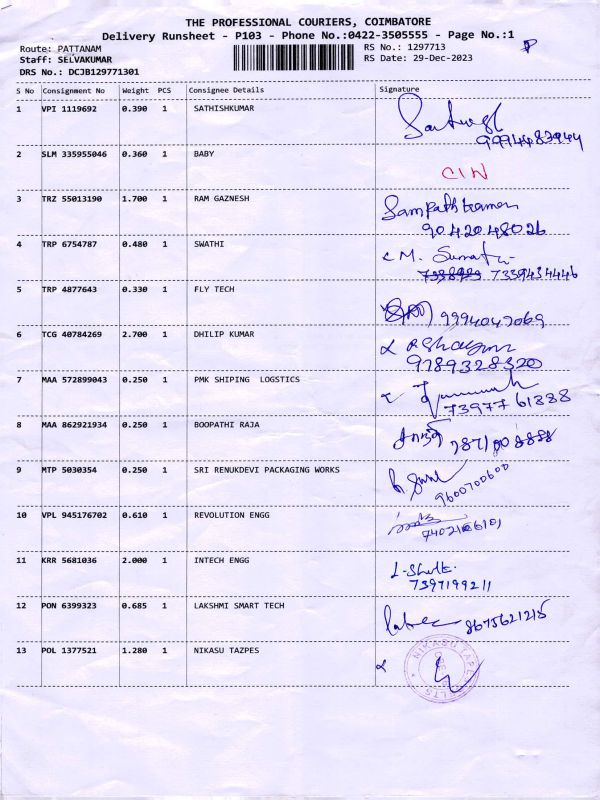 THE PROFESSIONAL COURIERS, COIMBATORE
Delivery Runsheet - P103 - Phone No.:0422-3505555 - Page No.:1
Route: PATTANAM
RS No.: 1297713
Staff: SELVAKUMAR
RS Date: 29-Dec-2023
DRS No.: DCJB129771301
S No Consignment No Weight PCS Consignee Details Signature
1 VPI 1119692 0.390 1 SATHISHKUMAR
2 SLM 335955046 0.360 1 BABY
CIN
3 TRZ 55013190 1.700 1 RAM GAZNESH
9042048026
4 TRP 6754787 0.480 1 SWATHI
7339434446
5 TRP 4877643 0.330 1 FLY TECH
9994047069
6 TCG 40784269 2.700 1 DHILIP KUMAR
9789328320
7 MAA 572899043 0.250 1 PMK SHIPING LOGSTICS
7397761888
8 MAA 862921934 0.250 1 BOOPATHI RAJA
9 MTP 5030354 0.250 1 SRI RENUKDEVI PACKAGING WORKS
9600700600
10 VPL 945176702 0.610 1 REVOLUTION ENGG
11 KRR 5681036 2.000 1 INTECH ENGG
7397199211
12 PON 6399323 0.685 1 LAKSHMI SMART TECH
8675621215
13 POL 1377521 1.280 1 NIKASU TAZPES